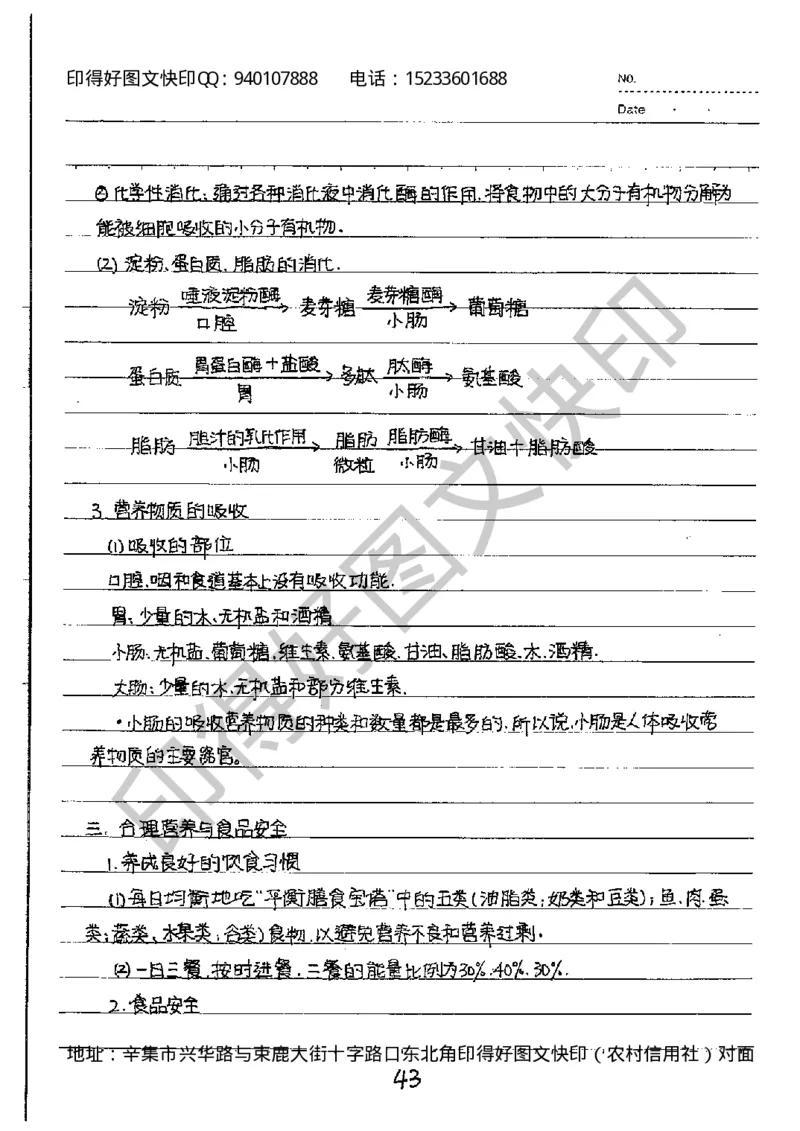 印得好图文快印QQ：940107888 电话：15233601688
NO.
Date
②化学性消化：通过各种消化液中消化酶的作用，将食物中的大分子有机物分解为
能被细胞吸收的小分子有机物．
(2) 淀粉、蛋白质、脂肪的消化．
淀粉 唾液淀粉酶 口腔 → 麦芽糖 麦芽糖酶 小肠 → 葡萄糖
蛋白质 胃蛋白酶＋盐酸 胃 → 多肽 肽酶 小肠 → 氨基酸
脂肪 胆汁的乳化作用 小肠 → 脂肪微粒 脂肪酶 小肠 → 甘油＋脂肪酸
3. 营养物质的吸收
(1)吸收的部位
口腔、咽和食道基本上没有吸收功能．
胃：少量的水、无机盐和酒精
小肠：无机盐、葡萄糖、维生素、氨基酸、甘油、脂肪酸、水、酒精．
大肠：少量的水、无机盐和部分维生素．
·小肠的吸收营养物质的种类和数量都是最多的，所以说，小肠是人体吸收营
养物质的主要器官。
三．合理营养与食品安全
1.养成良好的饮食习惯
(1)每日均衡地吃“平衡膳食宝塔”中的五类(油脂类；奶类和豆类)；鱼、肉、蛋
类；蔬类、水果类；谷类)食物，以避免营养不良和营养过剩．
(2)一日三餐，按时进餐，三餐的能量比例为30%.40%.30%.
2.食品安全
地址：辛集市兴华路与束鹿大街十字路口东北角印得好图文快印（农村信用社）对面
43
印得好图文快印